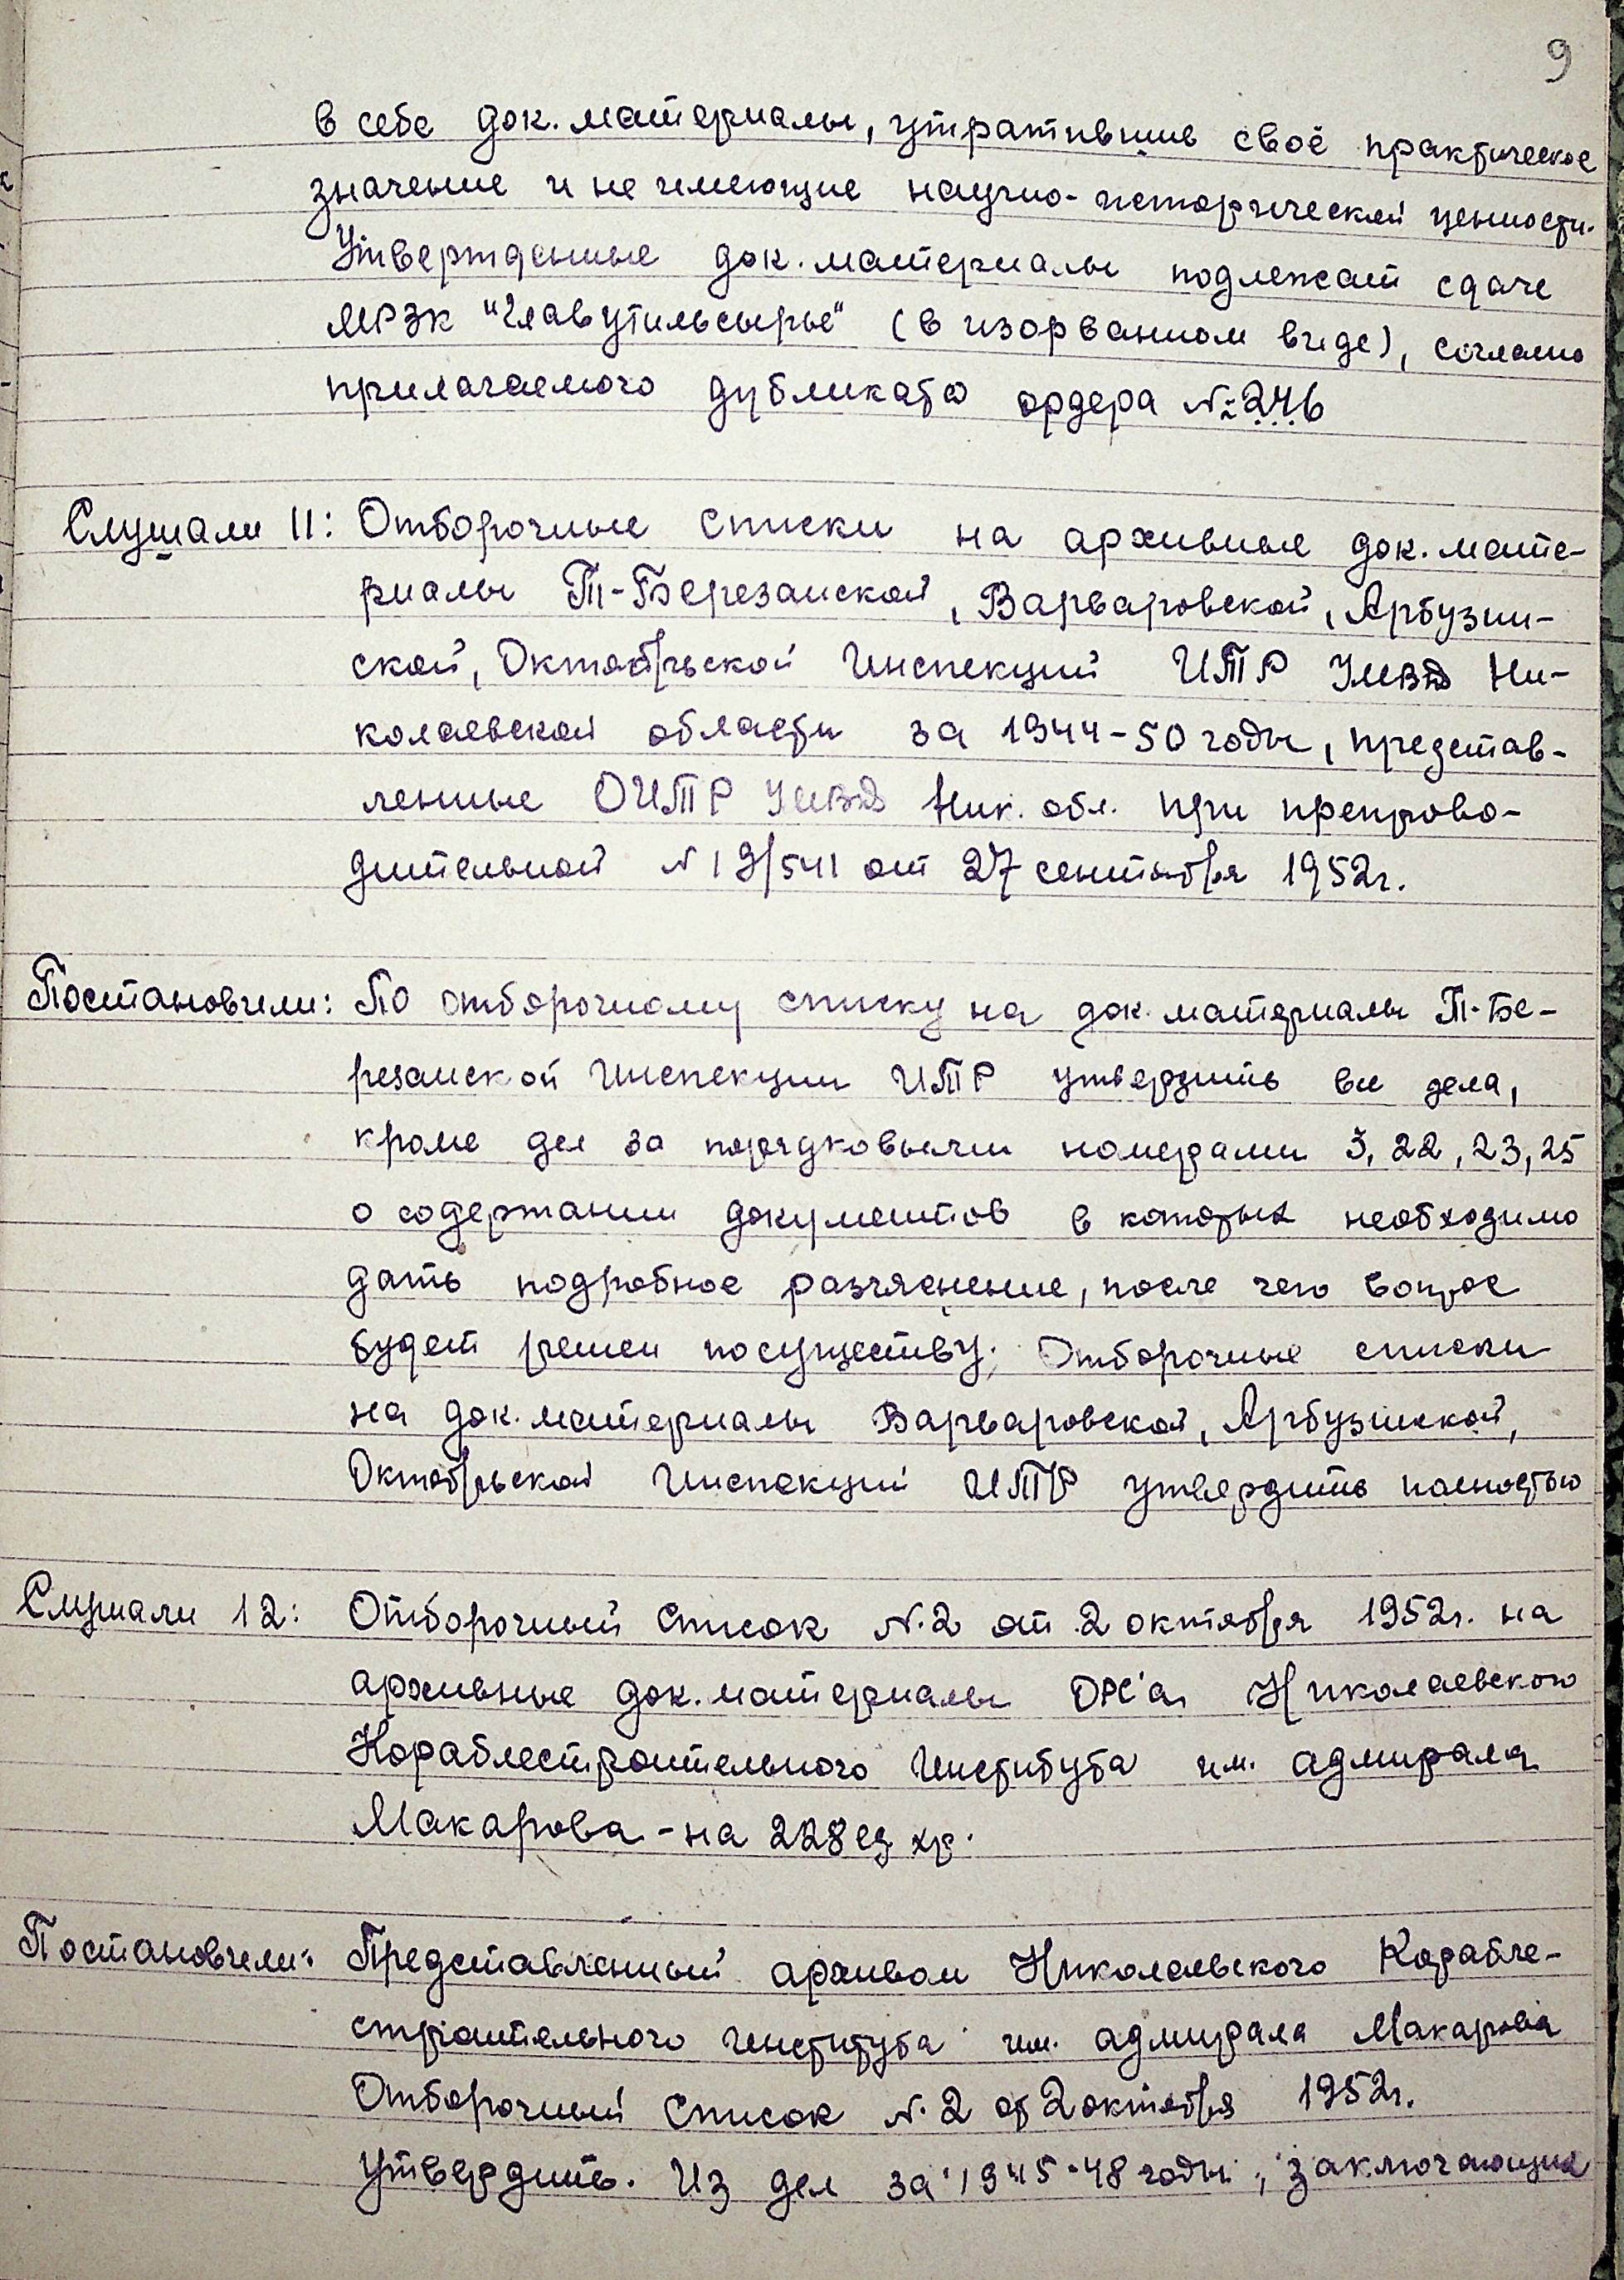 9
в себе док. материалы, утратившие своё практическое
значение и не имеющие научно-исторической ценности.
Утвержденные док. материалы подлежат сдаче
МРЗК "Главутильсырье" (в изорванном виде), согласно
прилагаемого дубликата ордера №246
Слушали 11: Отборочные списки на архивные док. мате-
риалы Т-Березанской, Варваровской, Арбузин-
ской, Октябрьской Инспекций ИТР УМВД Ни-
колаевской области за 1944-50 годы, представ-
ленные ОИТР УМВД Ник. обл. при препрово-
дительной №19/541 от 27 сентября 1952г.
Постановили: По отборочному списку на док. материалы Т-Бе-
резанской Инспекции ИТР утвердить все дела,
кроме дел за порядковыми номерами 3, 22, 23, 25
о содержании документов в которых необходимо
дать подробное разъяснение, после чего вопрос
будет решен посуществу; Отборочные списки
на док. материалы Варваровской, Арбузинской,
Октябрьской Инспекций ИТР утвердить полностью
Слушали 12: Отборочный список №2 от 2 октября 1952г. на
архивные док. материалы ОРС'а Николаевского
Кораблестроительного Института им. адмирала
Макарова - на 228 ед хр.
Постановили: Представленный архивом Николаевского Корабле-
строительного института им. адмирала Макарова
Отборочный список №2 от 2 октября 1952г.
Утвердить. Из дел за 1945-48 годы, заключающие